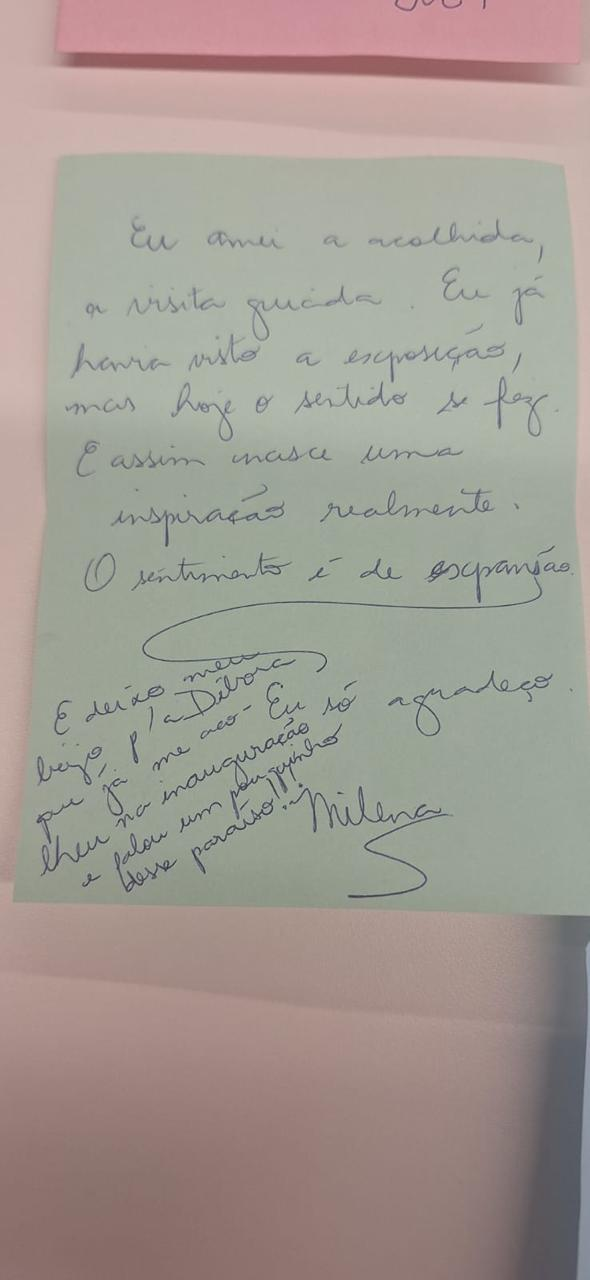 Eu amei a acolhida,
a visita guiada. Eu já
havia visto a exposição,
mas hoje o sentido se fez.
E assim nasce uma
inspiração realmente.
O sentimento é de expansão.
Eu só agradeço.
Milena
E deixo meu
beijo p/a Débora
que já me aco-
lheu na inauguração
e falou um pouquinho
desse paraíso!!!